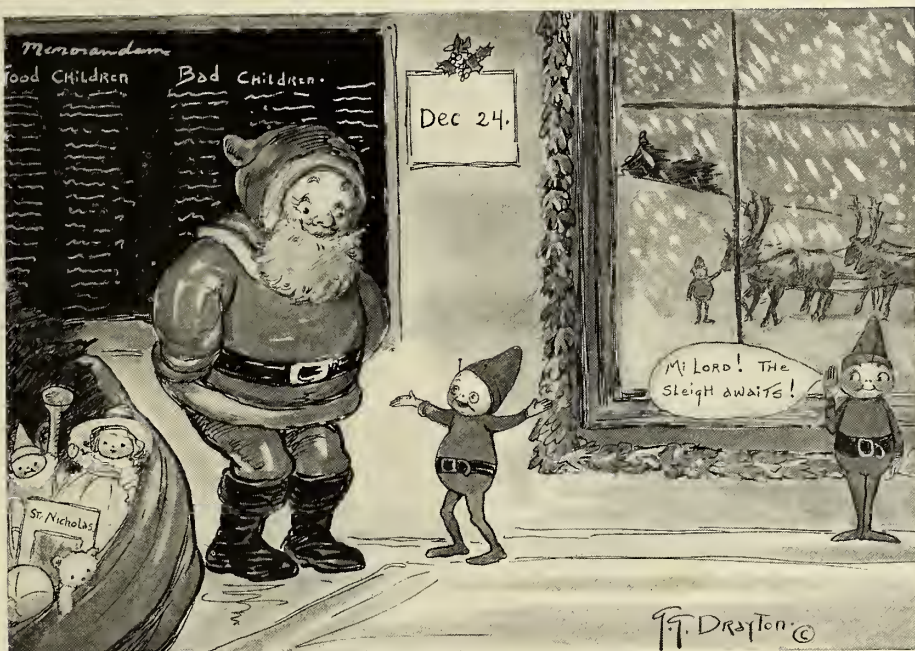 Memorandum
ood Children Bad Children.
Dec 24.
Mi Lord! The
sleigh awaits!
St. Nicholas
G.G. Drayton. ©